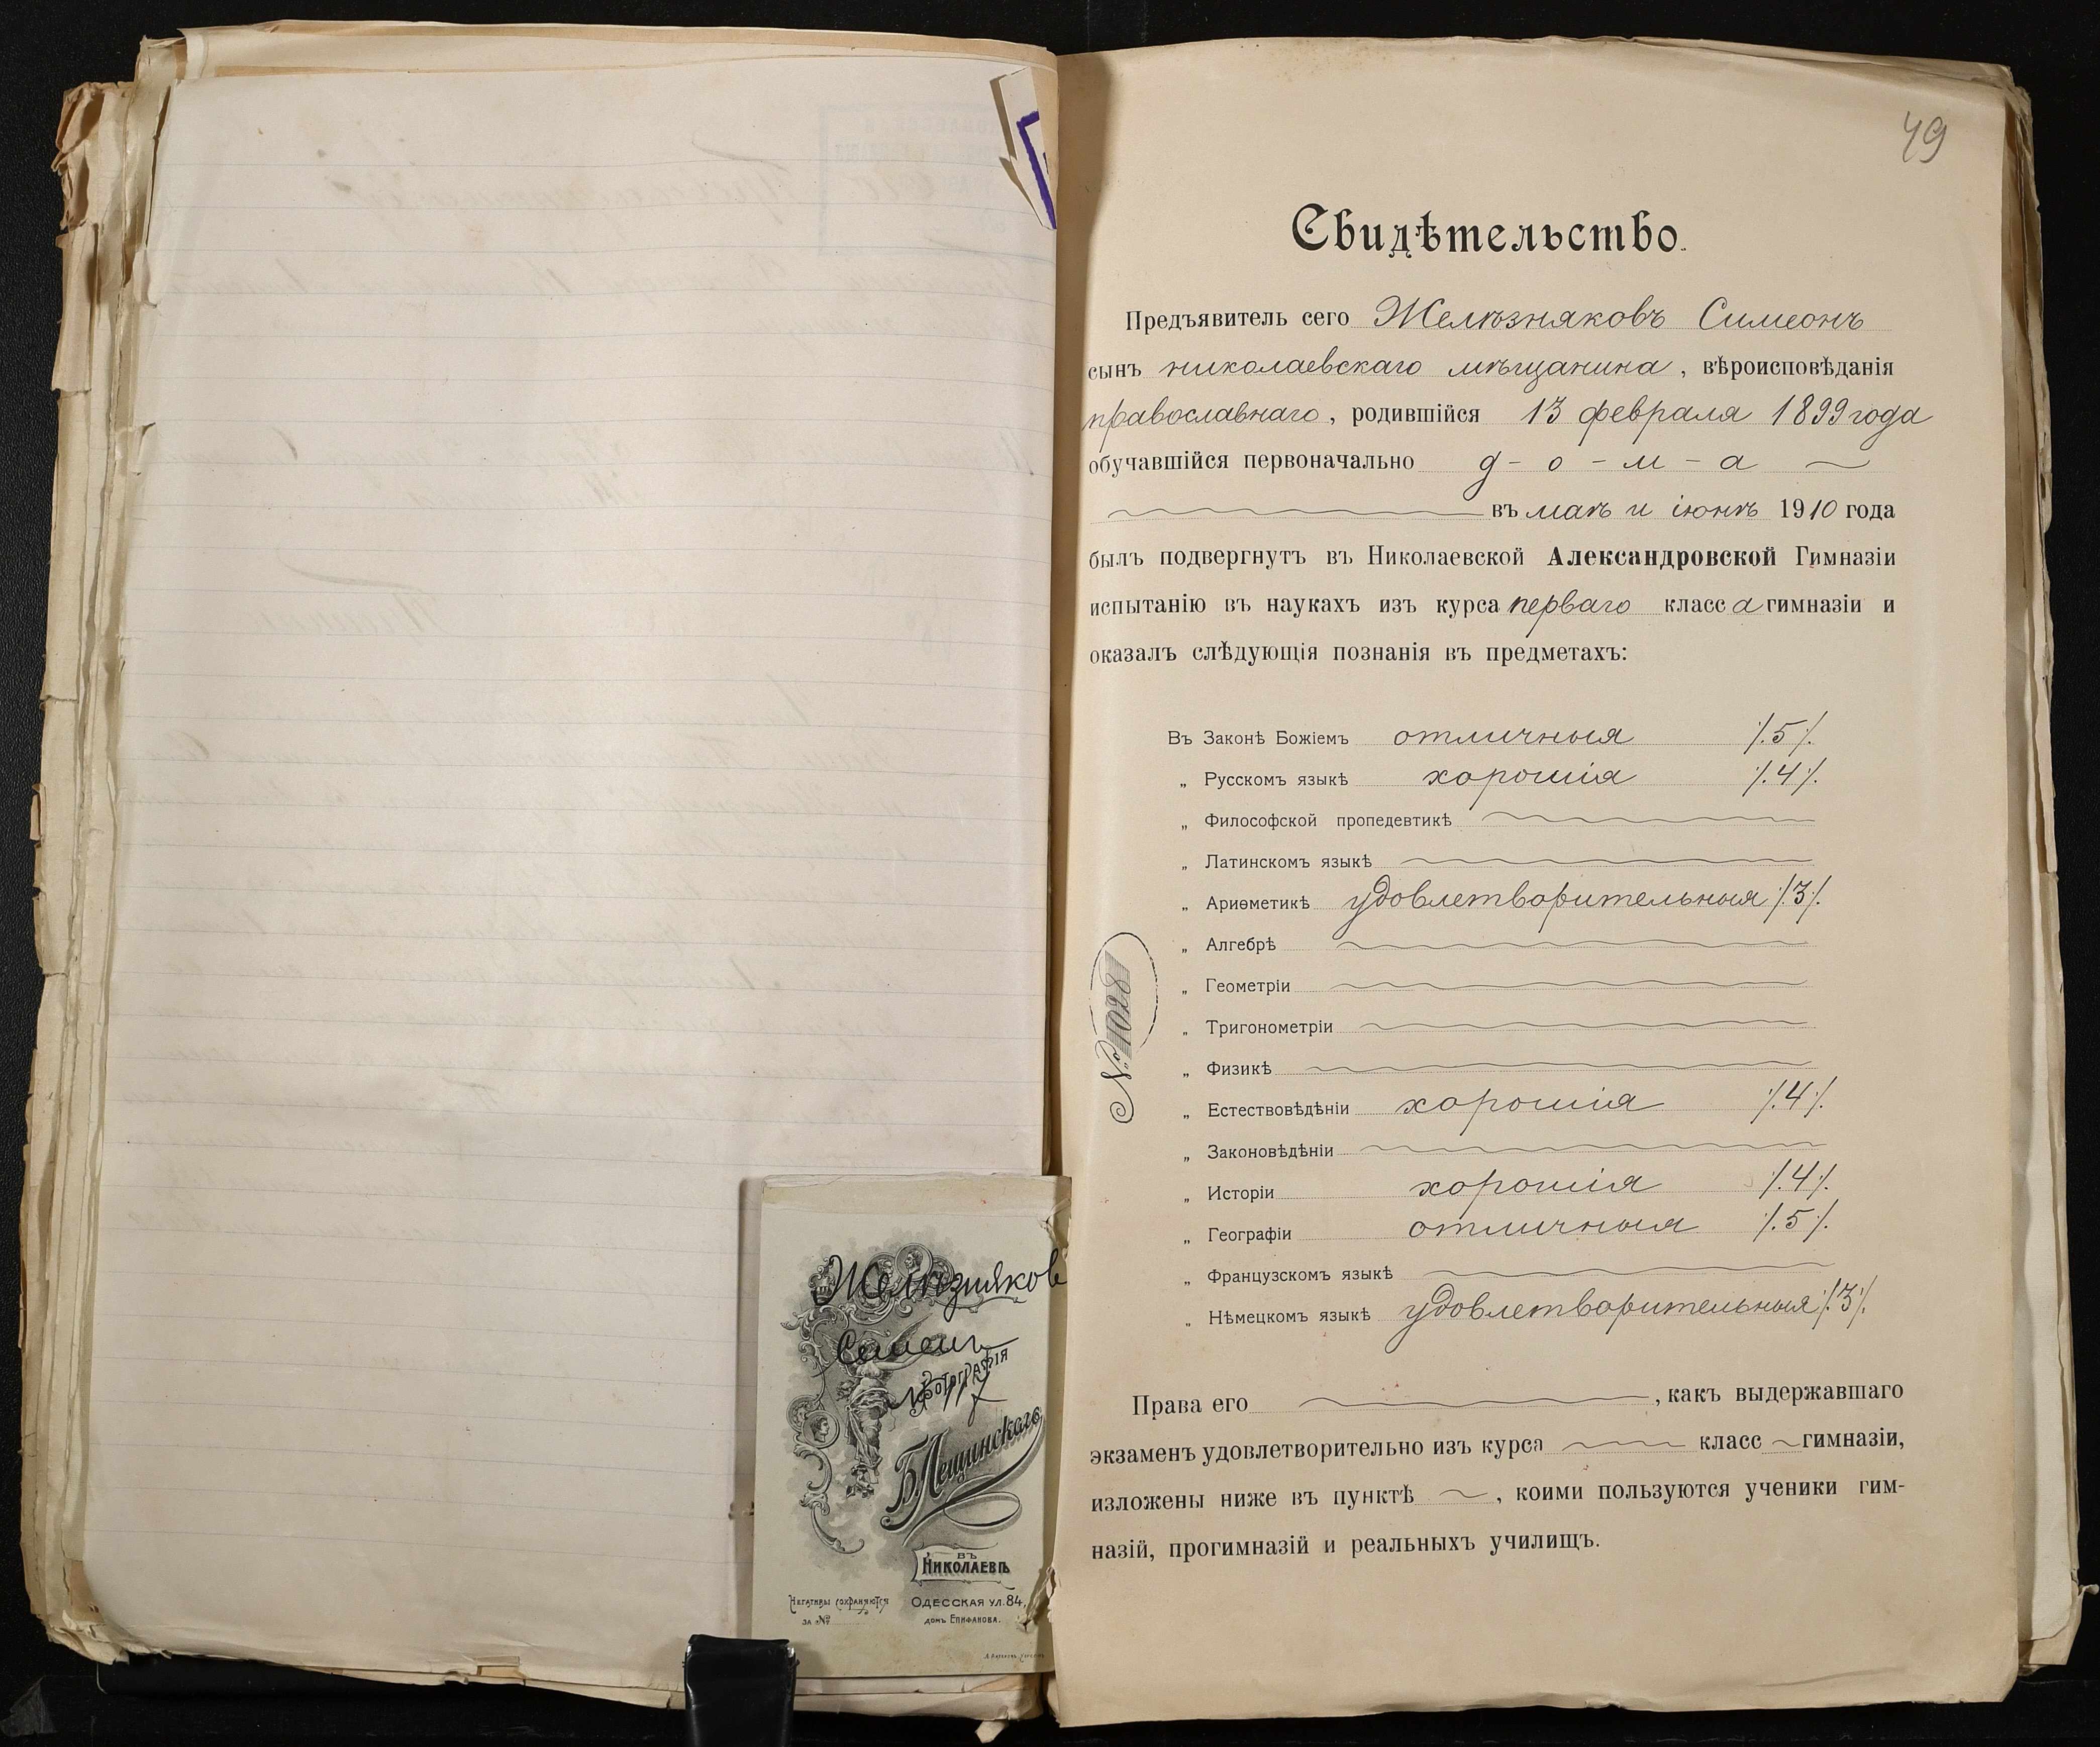 49
Свидѣтельство.
Предъявитель сего Желѣзняковъ Симеонъ
сынъ николаевскаго мѣщанина, вѣроисповѣданія
православнаго, родившійся 13 февраля 1899 года
обучавшійся первоначально д-о-м-а
въ маѣ и іюнѣ 1910 года
былъ подвергнутъ въ Николаевской Александровской Гимназіи
испытанію въ наукахъ изъ курса перваго класса гимназіи и
оказалъ слѣдующія познанія въ предметахъ:
Въ Законѣ Божіемъ отличныя /.5/.
„ Русскомъ языкѣ хорошія /.4/.
„ Философской пропедевтикѣ
„ Латинскомъ языкѣ
„ Ариѳметикѣ удовлетворительныя /.3/.
„ Алгебрѣ
„ Геометріи
„ Тригонометріи
„ Физикѣ
„ Естествовѣдѣніи хорошія /.4/.
„ Законовѣдѣніи
„ Исторіи хорошія /.4/.
„ Географіи отличныя /.5/.
„ Французскомъ языкѣ
„ Нѣмецкомъ языкѣ удовлетворительныя /.3/.
№ 1028
Права его , какъ выдержавшаго
экзаменъ удовлетворительно изъ курса класс гимназіи,
изложены ниже въ пунктѣ , коими пользуются ученики гим-
назій, прогимназій и реальныхъ училищъ.
Желѣзняковъ
Семенъ
Фотографія
Б Лещинскаго
въ
Николаевѣ
Негативы сохраняются
за №
Одесская ул. 84,
домъ Епифанова.